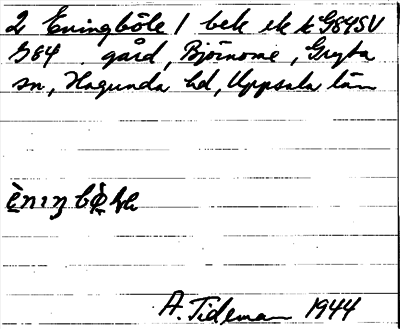 2 Eningböle / bek ek k G84SV
G84 . gård, Björnome, Gryta
sn, Hagunda hd, Uppsala län
A. Tideman 1944